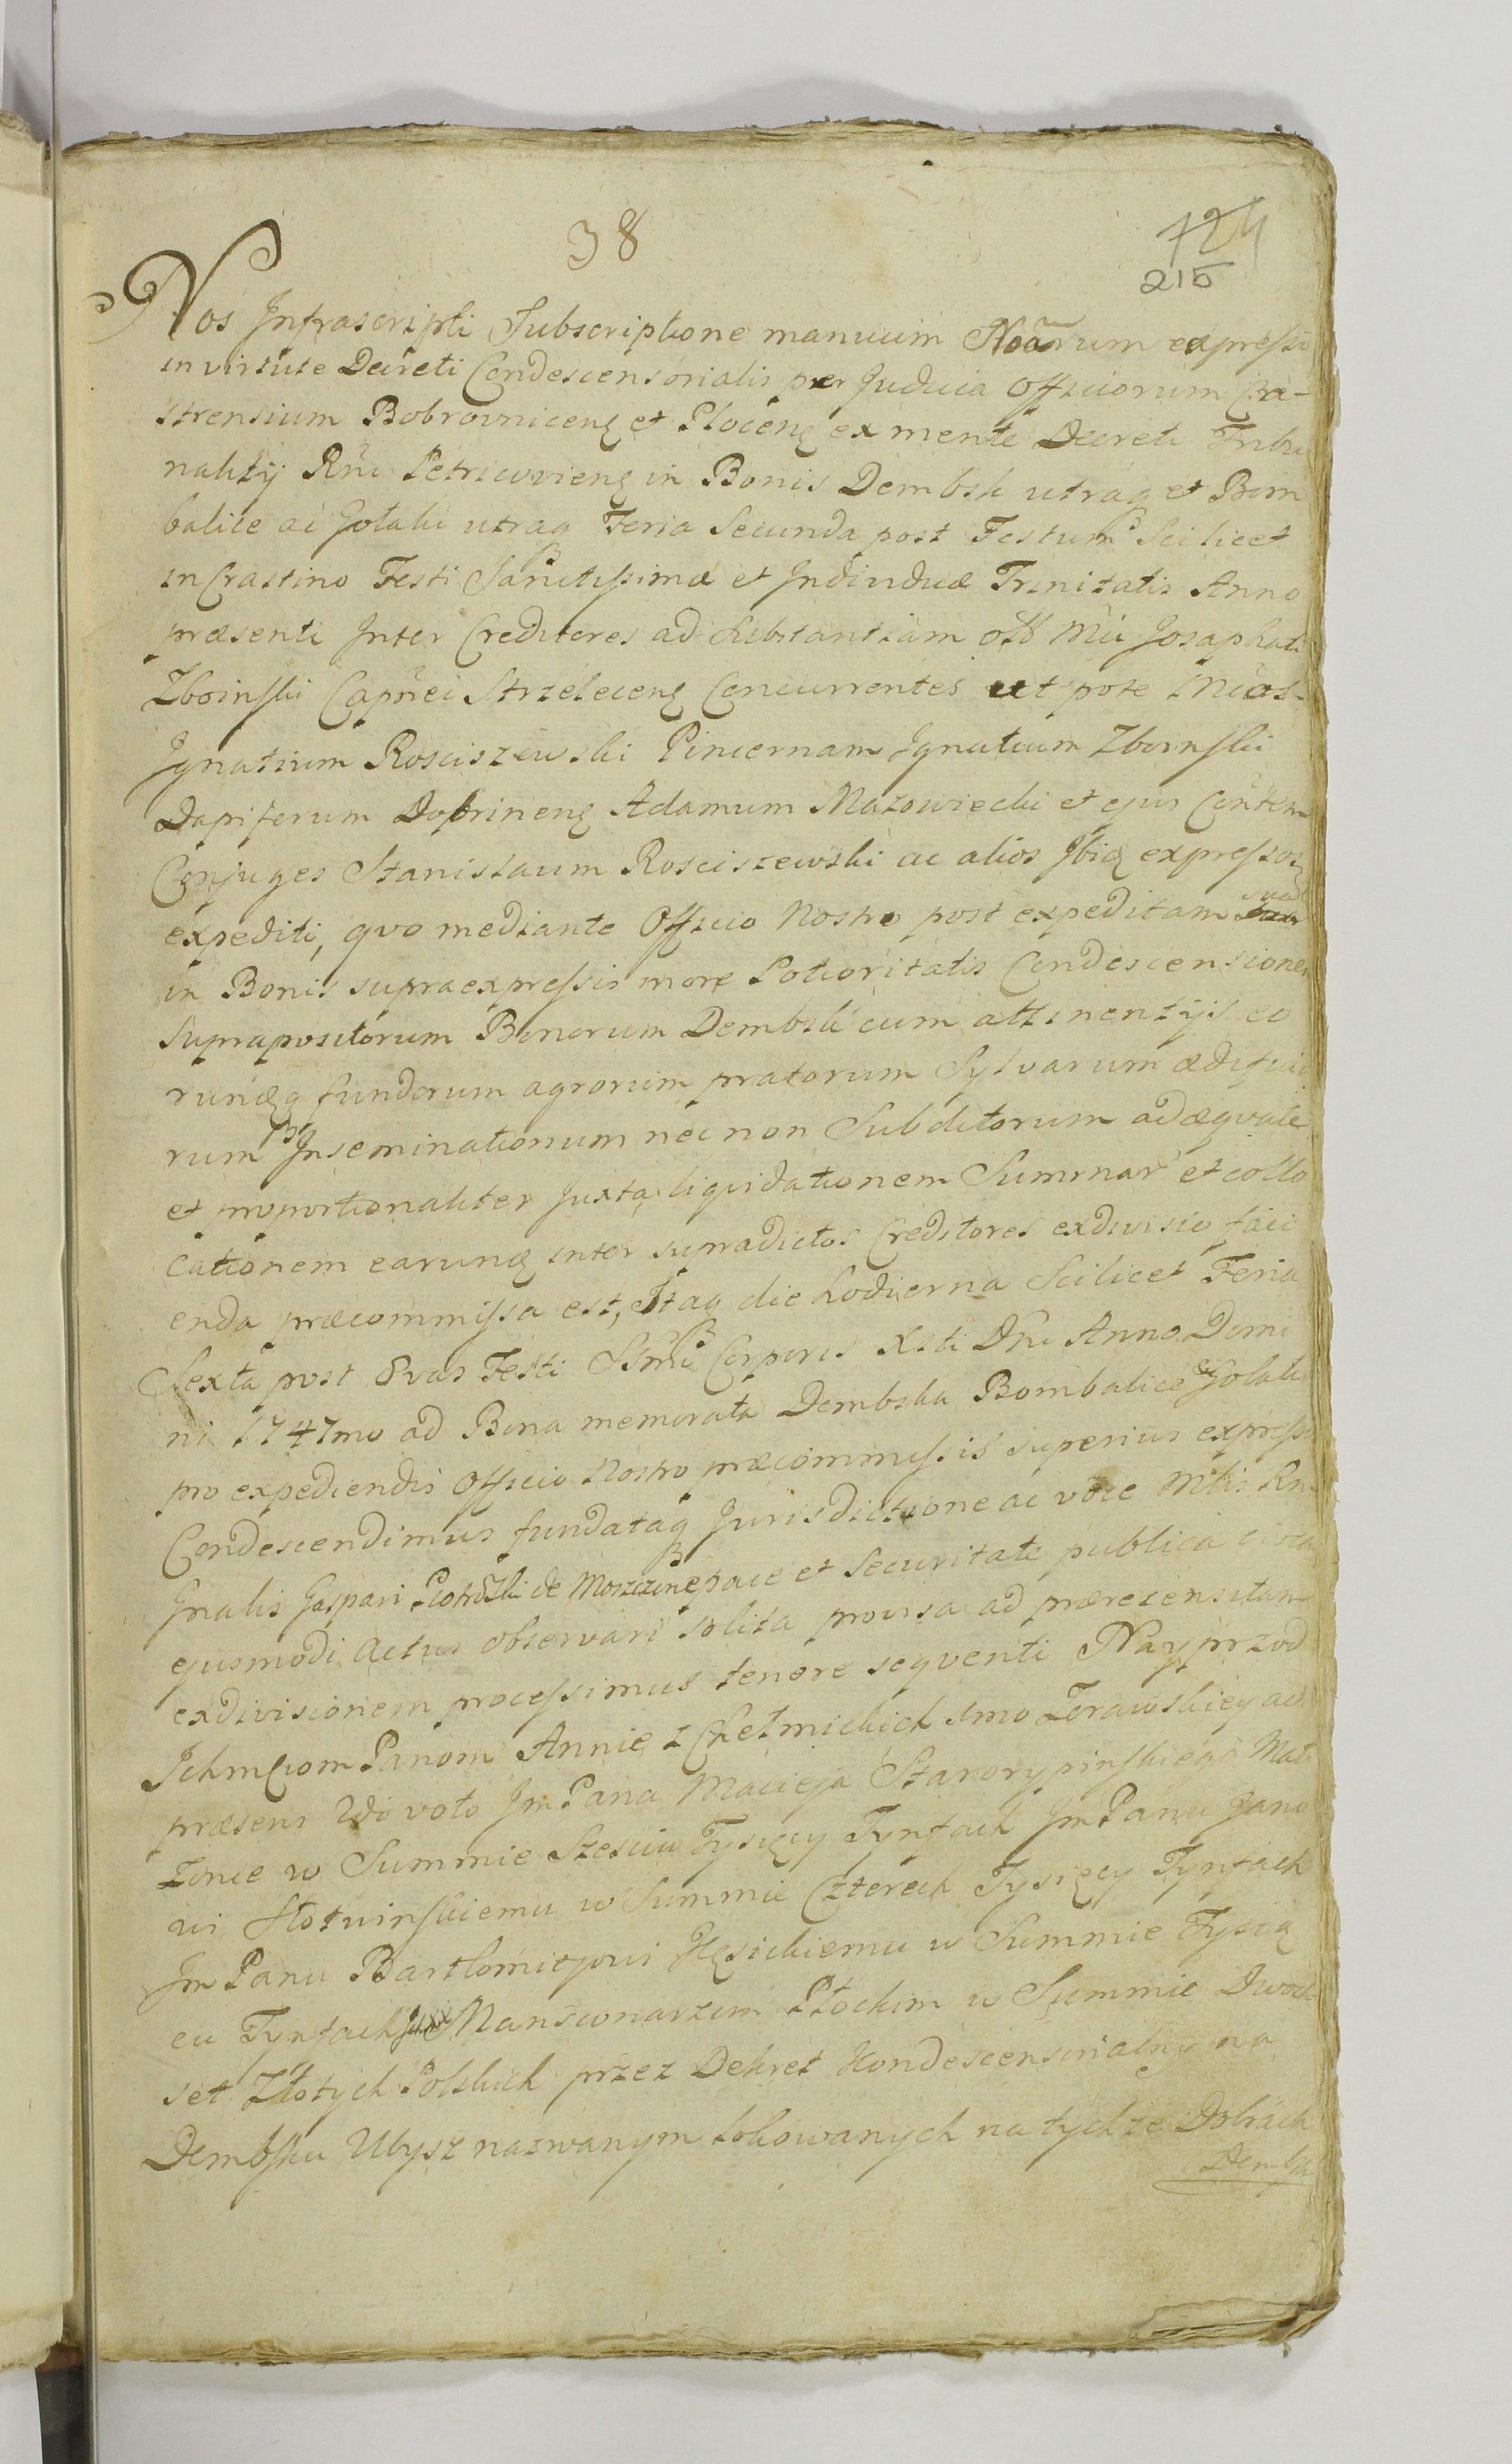 38
724
215
Nos Infrascripti Subscriptione manuum Noãrum expressi
in virtute Decreti Condescensorialis per Judicia Officiorum Ca-
strensium Bobrovniceng et Ploceng ex mente Decreti Tribu
nalitij Rñi Petricovieng in Bonis Dembsk utraq et Bom
balice ac Gołaki utraq Feria Secunda post Festum Scilicet
in Crastino Festi Sanctissimæ et Individuæ Trinitatis Anno
præsenti Inter Creditores ad substantiam olb Mci Josaphati
Zboinski Capñei Strzeleceng Concurrentes ut pote Mcos
Ignatium Rosciszewski Pincernam Ignatium Zboinski
Dapiferum Dobrineng Adamum Mazowiecki et ejus Conten
Conjuges Stanislaum Rosciszewski ac alios Ibiq expressos
expediti, qvo mediante Officio Nostro post expeditam suad
in Bonis supraexpressis more Potioritatis Condescensionem
suprapositorum Bonorum Dembsk cum attinentijs eo
rundq fundorum agrorum pratorum Sylvarum ædificio
rum Inseminationum nec non Subditorum adæqvate
et proportionaliter Juxta liqvidationem Summar et collo
cationem earunq inter supradictos Creditores exdivisio faci
enda præcommissa est, Itaq die hodierna Scilicet Feria
Sexta post 8vas Festi Ssmi Corporis Xsti Dni Anno Domi
ni 1747mo ad Bona memorata Dembska Bombalice & Gołaki
pro expediendis Officio Nostro præcommissis superius expressis
Condescendimus fundataq Jurisdictione ac voce Mtlis Rn
Gnalis Gaspari Piotrowski de Moszczone pace et Securitate publica circa
ejusmodi Actus observari solita provisa ad præresensitam
exdivisionem processimus tenore seqventi Nayprzod
Ichmciom Panom Annie z Chełmickich 1mo Zorawskiey ad
præsens Wdo voto Jm Pana Macieja Starorypinskiego Mał
zonce w Summie Szesciu Tysięcy Tynfach Jm Panu Jano
wi Słotwinskiemu w Summie Czterech Tysięcy Tynfach
Jm Panu Bartłomiejowi Kęsickiemu w Summie Tysią
cu Tynfach Mansionarzom Płockim w Summie Dwoch
set Złotych Polskich przez Dekret Kondescensorialny na
Dembsku Ubysz nazwanym lokowanych na tychze Dobrach
Dembsk